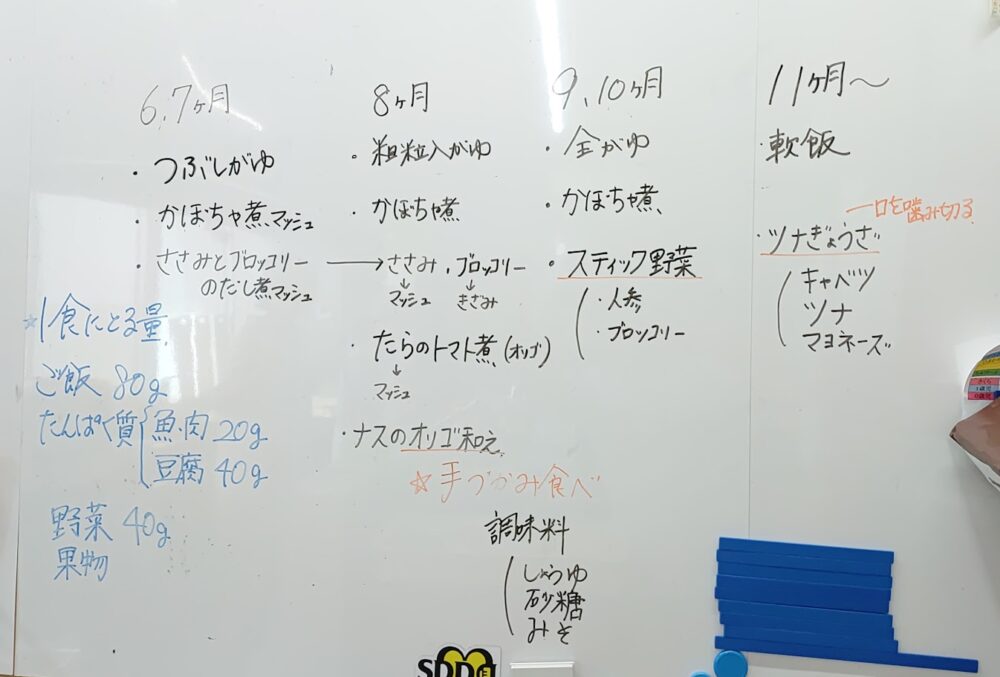 6,7ヶ月
・つぶしがゆ
・かぼちゃ煮マッシュ
・ささみとブロッコリー
のだし煮マッシュ
☆1食にとる量
ご飯 80g
たんぱく質 魚・肉 20g
豆腐 40g
野菜 40g
果物
8ヶ月
・粗粒入がゆ
・かぼちゃ煮
→ささみ・ブロッコリー
↓ ↓
マッシュ きざみ
・たらのトマト煮(オリゴ)
↓
マッシュ
・ナスのオリゴ和え
☆手づかみ食べ
調味料
しょうゆ
砂糖
みそ
9,10ヶ月
・全がゆ
・かぼちゃ煮
・スティック野菜
・人参
・ブロッコリー
11ヶ月〜
・軟飯
一口を噛み切る
・ツナぎょうざ
キャベツ
ツナ
マヨネーズ